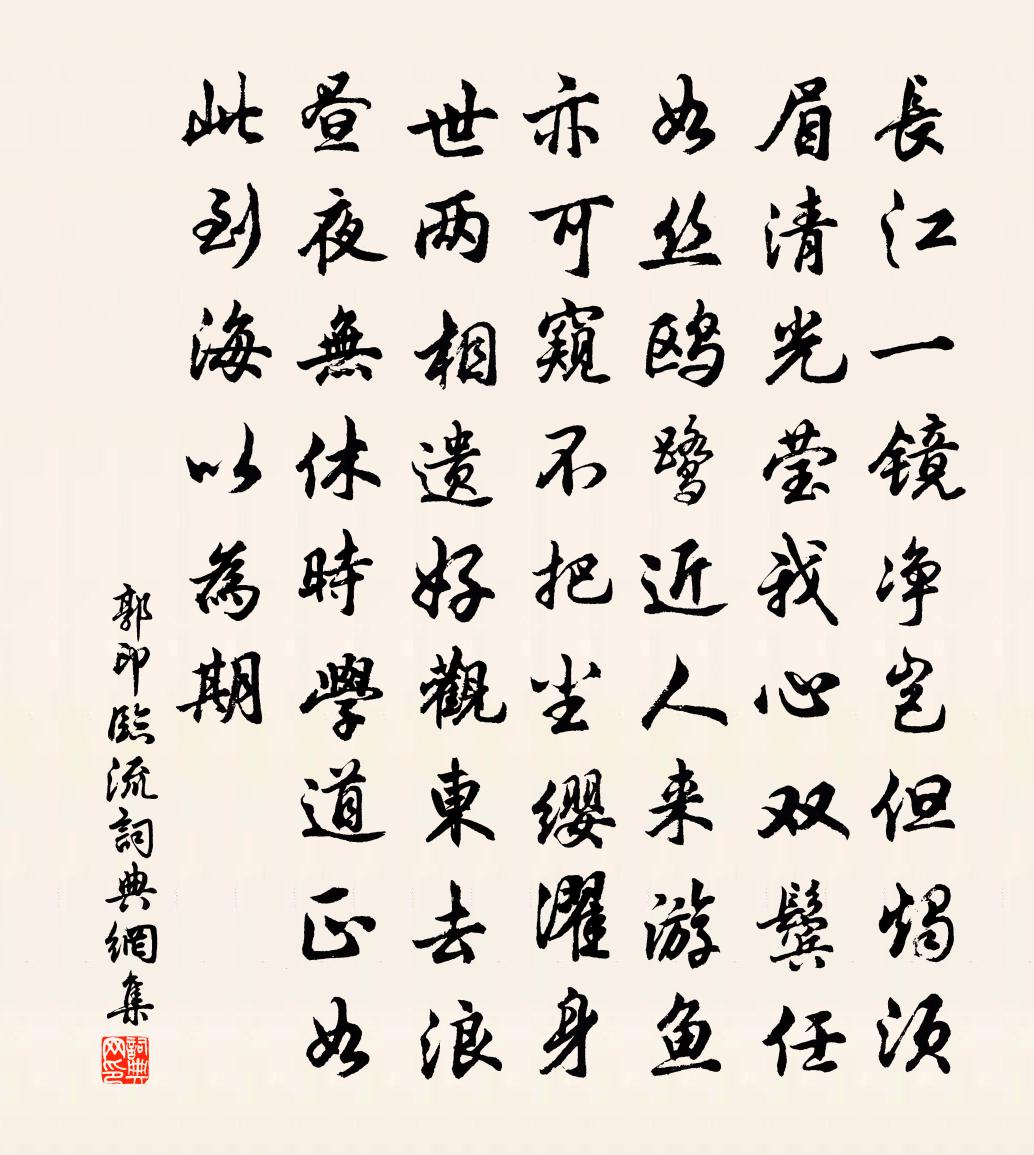 長江一镜净岂但燭须
眉清光莹我心双鬓任
如丝鸥鹭近人来游鱼
亦可窥不把尘缨濯身
世两相遗好觀東去浪
昼夜無休時學道正如
此到海以為期
郭印臨流詞典網集
詞典网印